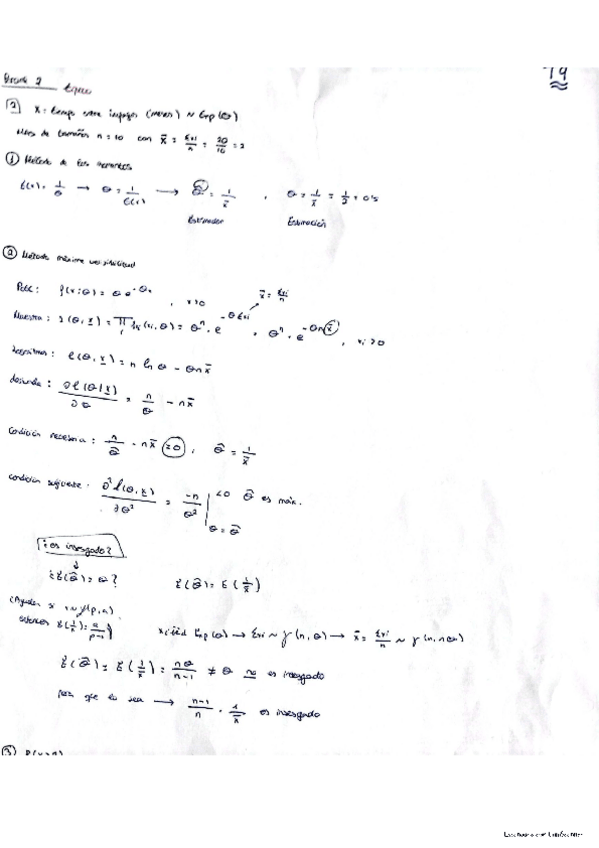 19
2 X = tiempo entre impagos (meses) ~ Exp(θ)
n = 10 con x̄ = Σxi/n = 20/10 = 2
① Método de los momentos
E(x) = 1/θ → θ = 1/E(x) → θ̂ = 1/x̄ , θ = 1/x̄ = 1/2 = 0'5
Estimador Estimación
② Método máxima verosimilitud
f(x;θ) = θ e^-θx , x>0 x̄ = Σxi/n
Muestra: (θ, x) = ∏ fx(xi, θ) = θ^n · e^-θΣxi = θ^n · e^-θn x̄ , xi > 0
ℓ(θ, x) = n ln θ - θn x̄
derivada: ∂ℓ(θ, x)/∂θ = n/θ - n x̄
Condición necesaria: n/θ̂ - n x̄ = 0 , θ̂ = 1/x̄
Condición suficiente: ∂²ℓ(θ, x)/∂θ² = -n/θ² | θ = θ̂ <0 θ̂ es máx.
¿es insesgado?
¿E(θ̂) = θ? E(θ̂) = E(1/x̄)
(Ayuda: si x ~ γ(p, a)
entonces E(1/x) = a/p-1)
Exp(θ) → Σxi ~ γ(n, θ) → x̄ = Σxi/n ~ γ(n, nθ)
E(θ̂) = E(1/x̄) = nθ/n-1 ≠ θ no es insesgado
para que lo sea → n-1/n · 1/x̄ es insesgado
③